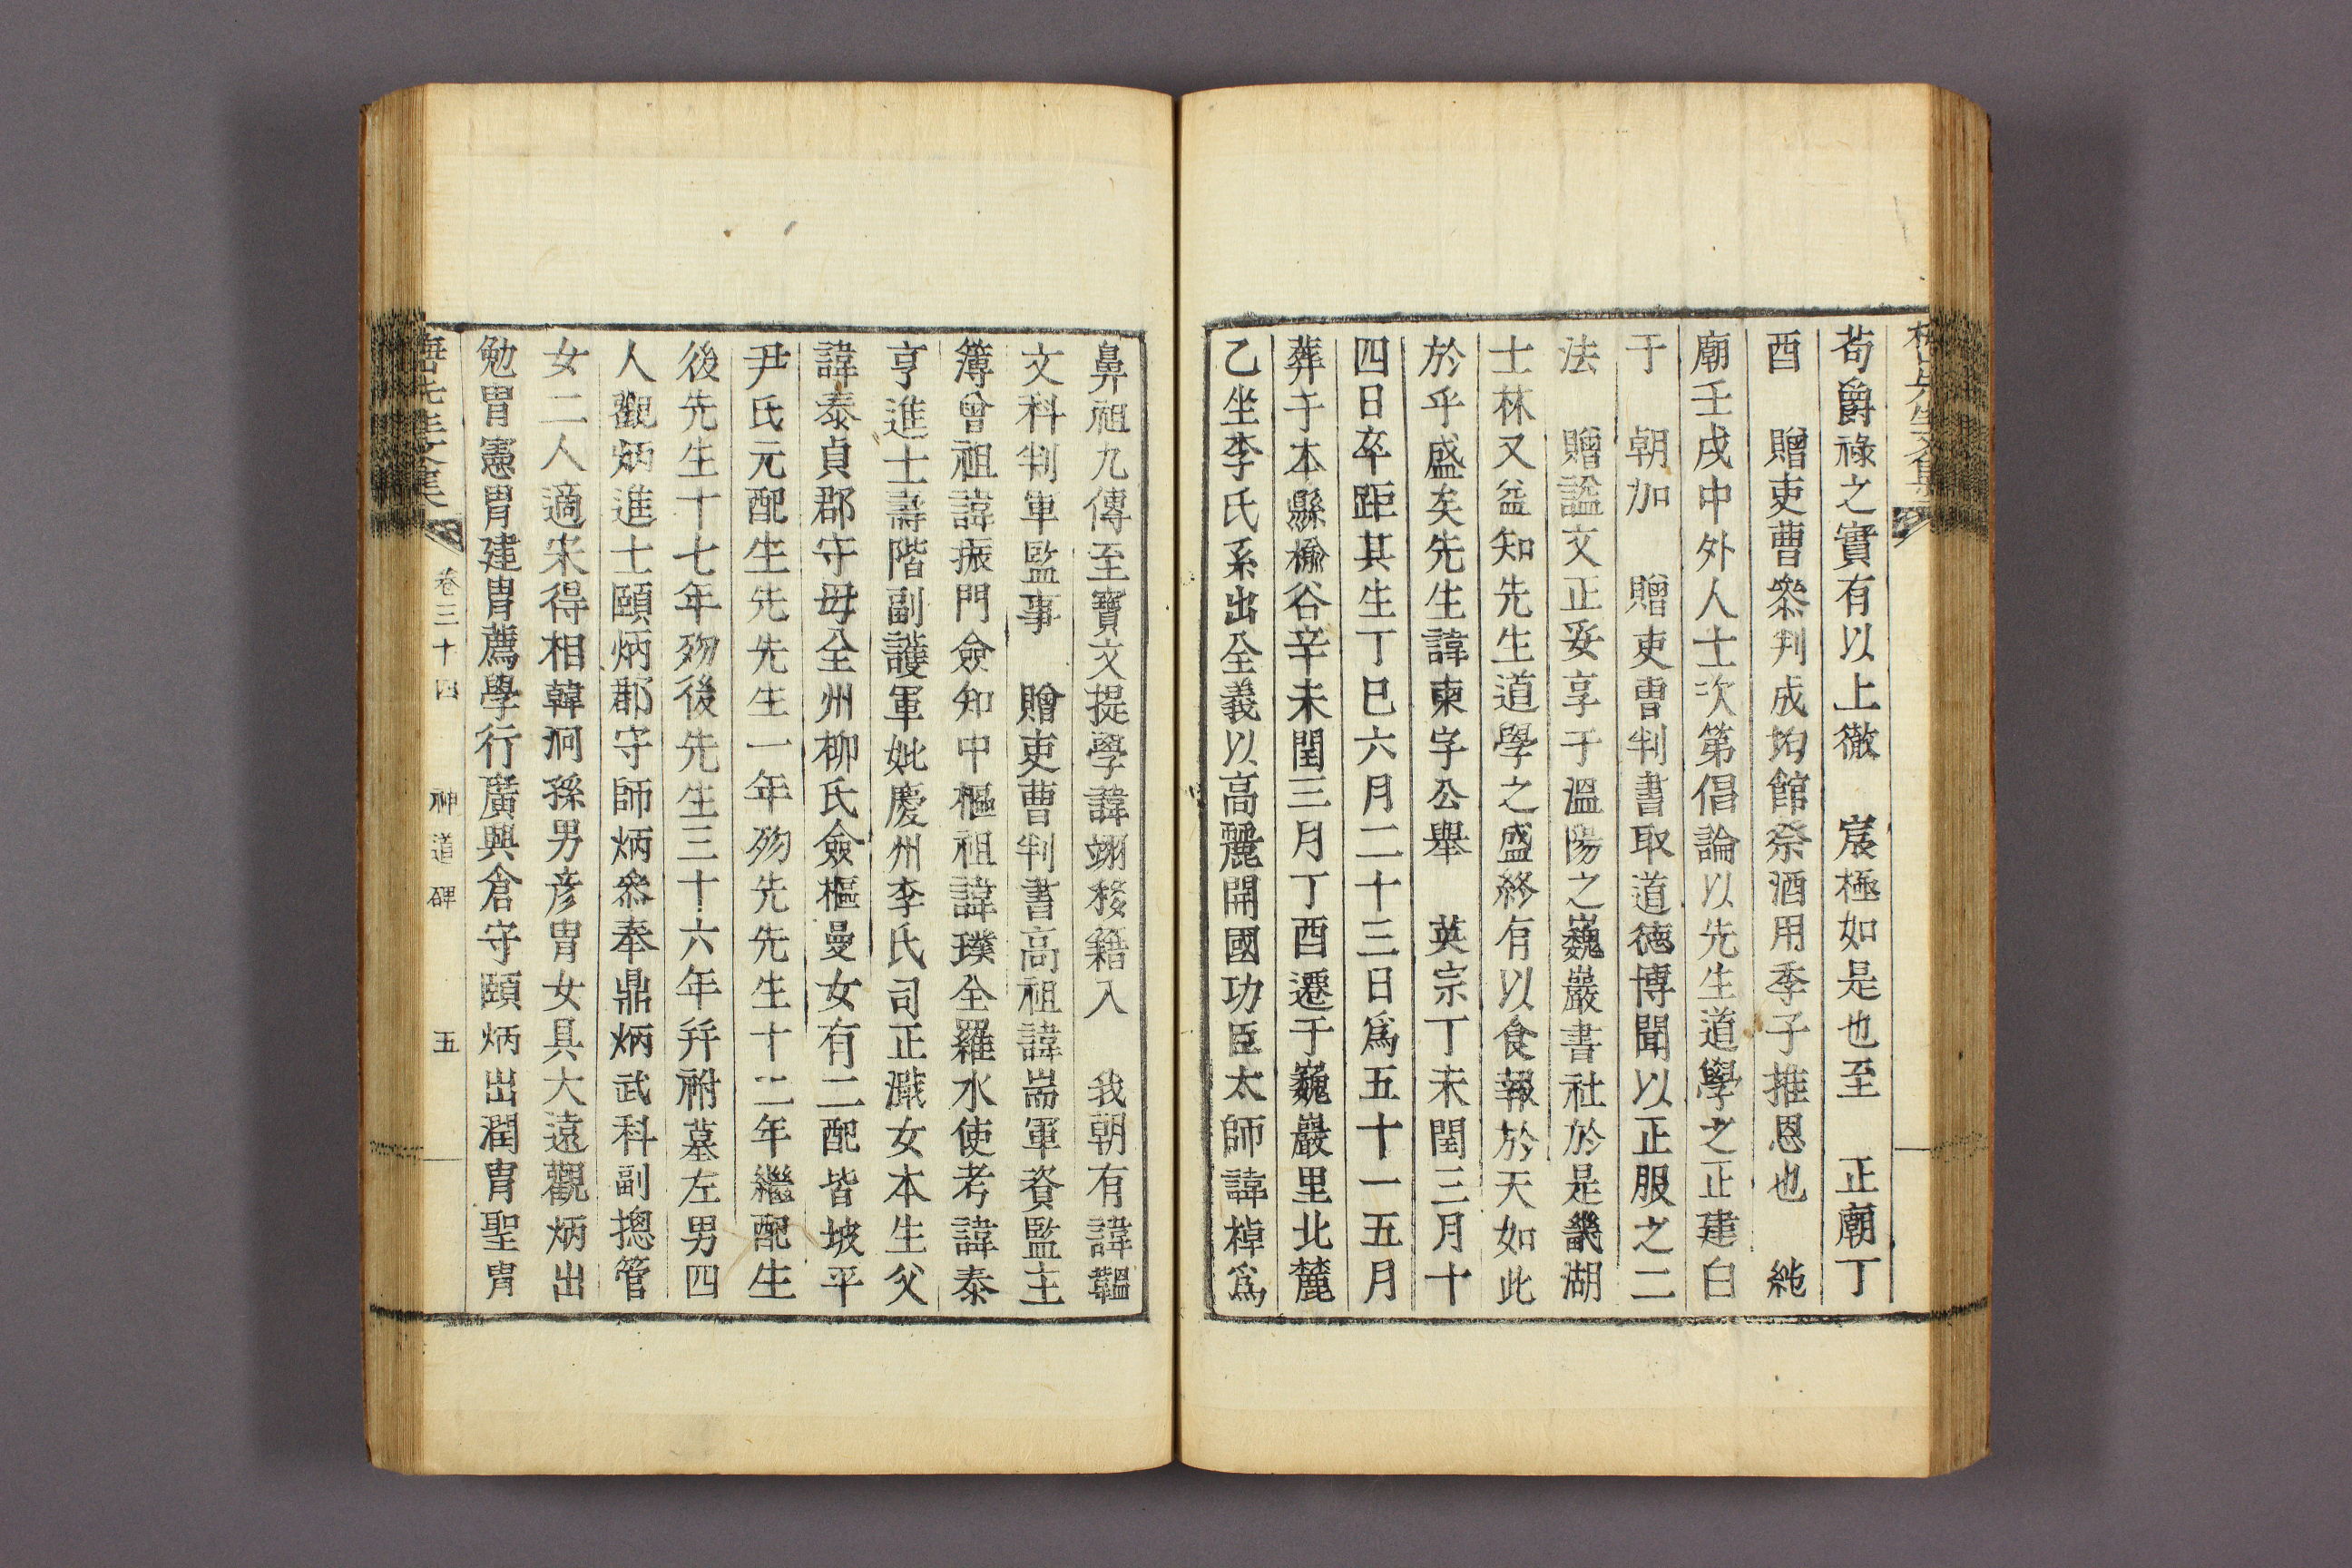 苟爵祿之實有以上徹 宸極如是也至 正廟丁
酉 贈吏曹叅判成均館祭酒用季子推恩也 純
廟壬戌中外人士次第倡論以先生道學之正建白
于 朝加 贈吏曹判書取道德博聞以正服之二
法 贈諡文正妥享于溫陽之巍巖書社於是畿湖
士林又益知先生道學之盛終有以食報於天如此
於乎盛矣先生諱柬字公擧 英宗丁未閏三月十
四日卒距其生丁巳六月二十三日爲五十一五月
葬于本縣楡谷辛未閏三月丁酉遷于巍巖里北麓
乙坐李氏系出全義以高麗開國功臣太師諱棹爲
鼻祖九傳至寶文提學諱翊移籍入 我朝有諱韞
文科判軍監事 贈吏曹判書高祖諱耑軍資監主
簿曾祖諱振門僉知中樞祖諱璞全羅水使考諱泰
亨進士壽階副護軍妣慶州李氏司正濈女本生父
諱泰貞郡守母全州柳氏僉樞曼女有二配皆坡平
尹氏元配生先先生一年歿先先生十二年繼配生
後先生十七年歿後先生三十六年幷祔墓左男四
人觀炳進士頤炳郡守師炳叅奉鼎炳武科副摠管
女二人適宋得相韓泂孫男彦胄女具大遠觀炳出
勉胄憲胄建胄薦學行廣興倉守頤炳出潤胄聖胄
先生文集
卷三十四 神道碑 五